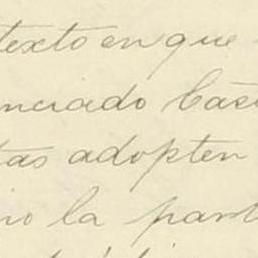 texto en que
nciado Cas
tas adopten
no la part